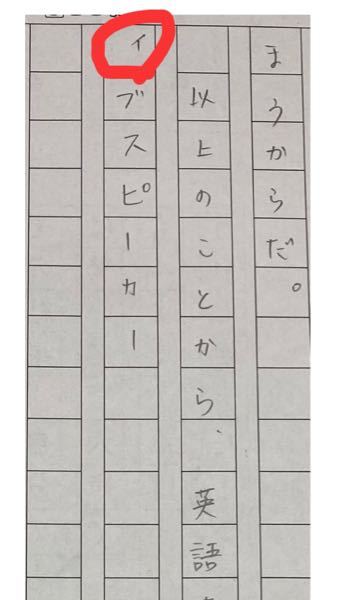 まうからだ。
以上のことから、英語
ィブスピーカー